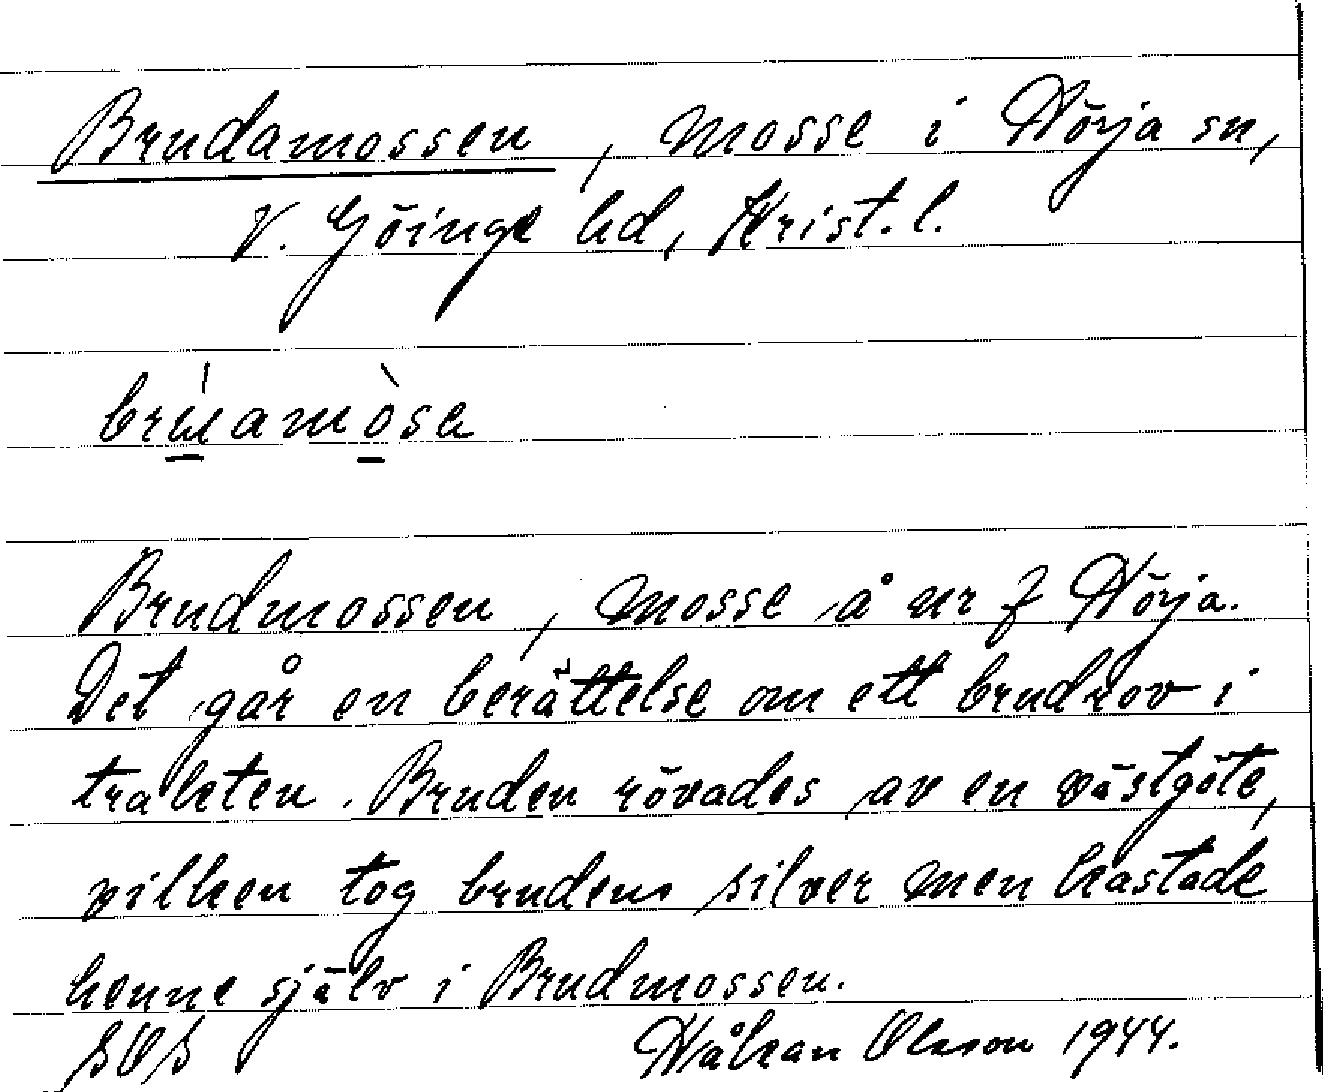 Brudamossen, mosse i Nörja sn,
V. Göinge hd, Krist. l.
brúamòsa
Brudmossen, mosse å nr 7 Nörja.
Det går en berättelse om ett brudrov i
trakten. Bruden rövades av en västgöte,
vilken tog brudens silver men kastade
henne själv i Brudmossen.
SOS Håkan Olsson 1944.